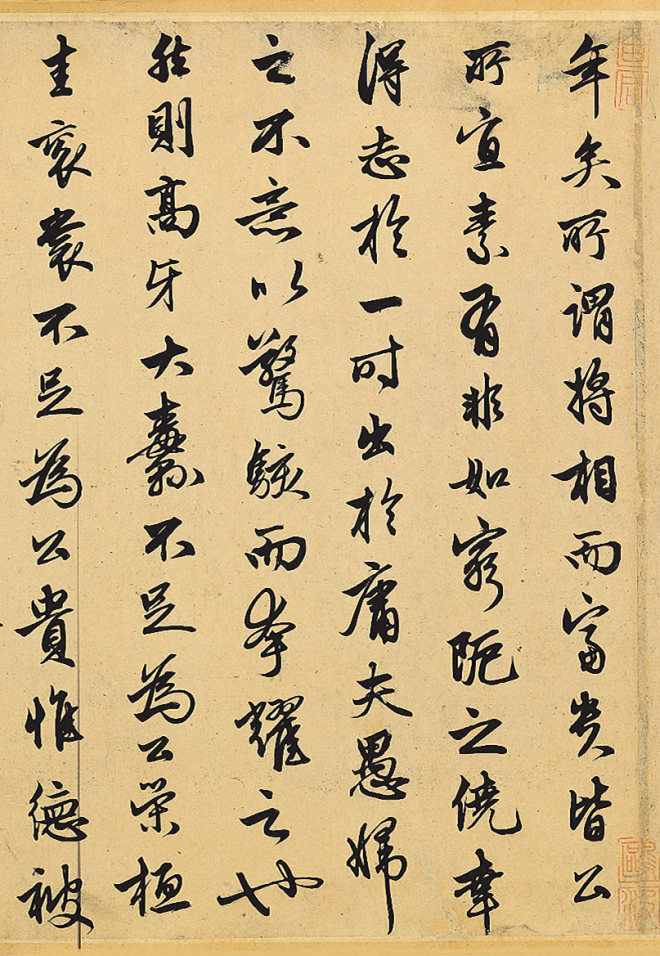 年矣所謂將相而富貴皆公
所宜素有非如窮阨之僥幸
得志於一時出於庸夫愚婦
之不意以驚駭而夸耀之也
然則高牙大纛不足為公榮桓
圭衮裳不足為公貴惟德被